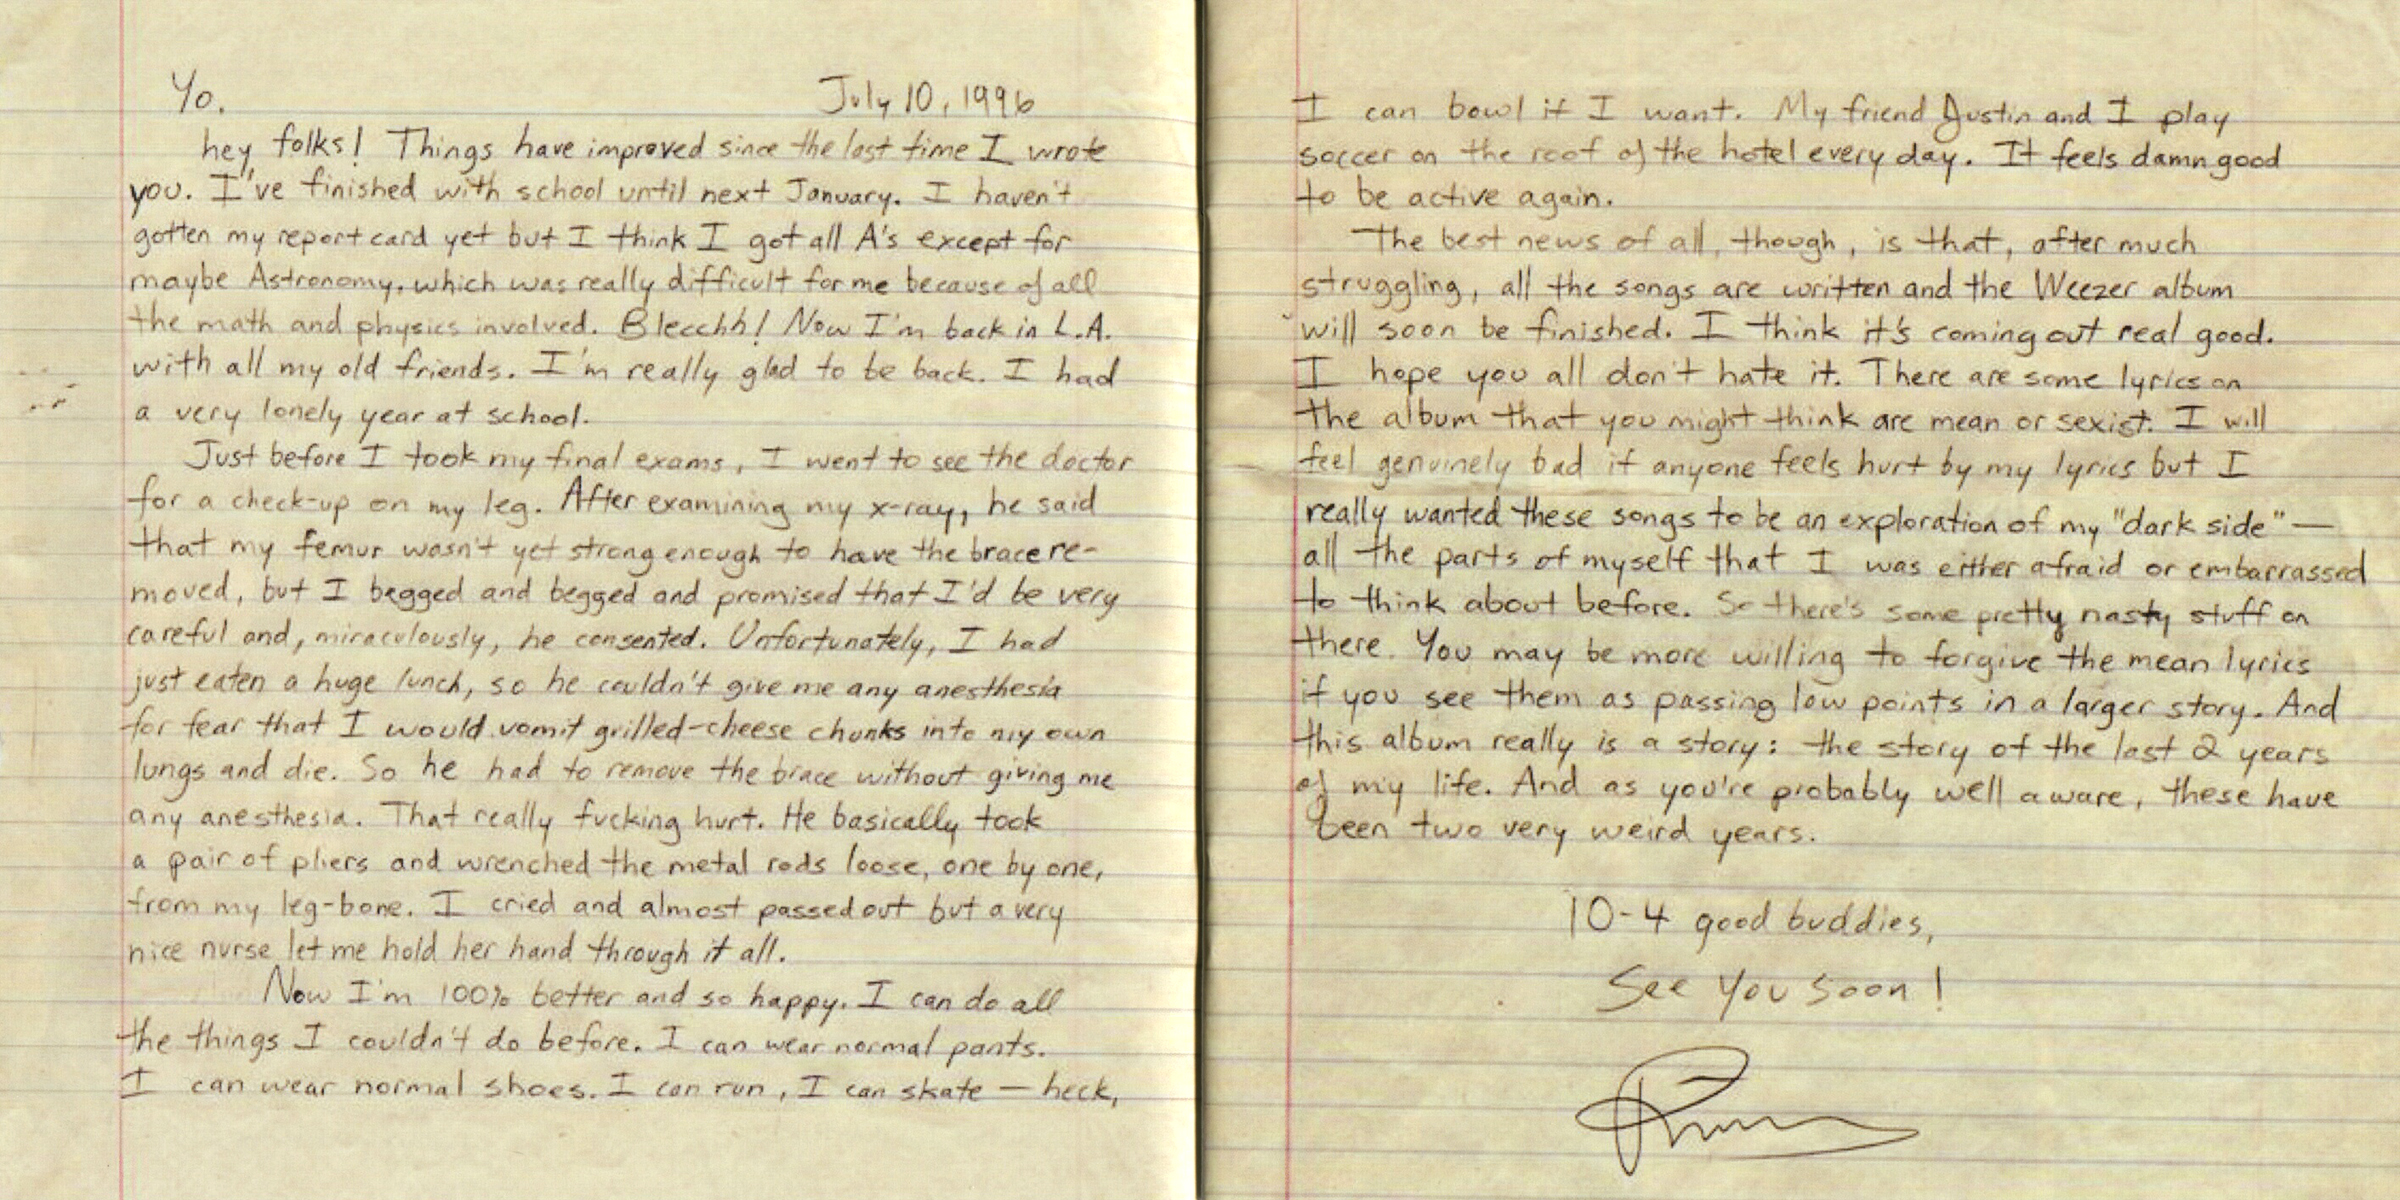 Yo. July 10, 1996
hey folks! Things have improved since the last time I wrote
you. I've finished with school until next January. I haven't
gotten my report card yet but I think I got all A's except for
maybe Astronomy, which was really difficult for me because of all
the math and physics involved. Blecchh! Now I'm back in L.A.
with all my old friends. I'm really glad to be back. I had
a very lonely year at school.
Just before I took my final exams, I went to see the doctor
for a check-up on my leg. After examining my x-ray, he said
that my femur wasn't yet strong enough to have the brace re-
moved, but I begged and begged and promised that I'd be very
careful and, miraculously, he consented. Unfortunately, I had
just eaten a huge lunch, so he couldn't give me any anesthesia
for fear that I would vomit grilled-cheese chunks into my own
lungs and die. So he had to remove the brace without giving me
any anesthesia. That really fucking hurt. He basically took
a pair of pliers and wrenched the metal rods loose, one by one,
from my leg-bone. I cried and almost passed out but a very
nice nurse let me hold her hand through it all.
Now I'm 100% better and so happy. I can do all
the things I couldn't do before. I can wear normal pants.
I can wear normal shoes. I can run, I can skate — heck,
I can bowl if I want. My friend Justin and I play
soccer on the roof of the hotel every day. It feels damn good
to be active again.
The best news of all, though, is that, after much
struggling, all the songs are written and the Weezer album
will soon be finished. I think it's coming out real good.
I hope you all don't hate it. There are some lyrics on
the album that you might think are mean or sexist. I will
feel genuinely bad if anyone feels hurt by my lyrics but I
really wanted these songs to be an exploration of my "dark side" —
all the parts of myself that I was either afraid or embarrassed
to think about before. So there's some pretty nasty stuff on
there. You may be more willing to forgive the mean lyrics
if you see them as passing low points in a larger story. And
this album really is a story: the story of the last 2 years
of my life. And as you're probably well aware, these have
been two very weird years.
10-4 good buddies,
See you soon!